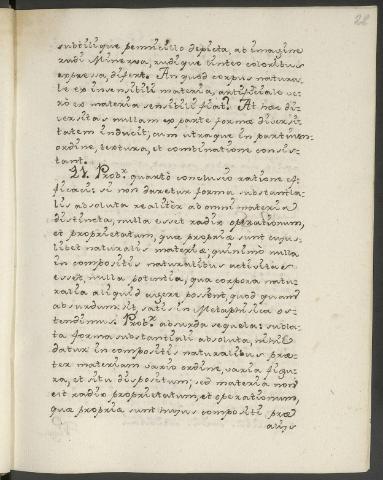 28
subtilique pennicillo depicta, ab imagine
rudi Minerva, rudique linteo coloribus
expressa, differt. An quod corpus natura-
le ex insensili materia, artificiale ve-
rò ex materia sensibili fiat? At hæc di-
versitas nullam ex parte formæ diversi-
tatem inducit; cum utraque in partium
ordine, textura, et combinatione consis-
tant.
27. Probr quartò conclusio ratione ef-
ficaci: si non daretur forma substantia-
lis absoluta realiter ab omni materia
distincta, nulla esset radix operationum,
et proprietatum, quæ propriæ sunt cujus-
libet naturalis materiæ; quinimò nulla
in compositis naturalibus activitas
esset, nulla potentia, qua corpora natu-
ralia aliquid agere possent, quod quam
absurdum sit, satis in Metaphysica os-
tendimus. Probr absurda sequela: subla-
ta forma substantiali absoluta, nihil
datur in compositis naturalibus præ-
ter materiam vario ordine, varia figu-
ra, et situ dispositum; sed materia non
est radix proprietatum, et operationum,
quæ propria sunt hujus compositi præ
aliis